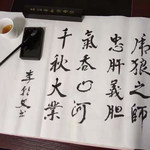 虎狼之師
忠肝義胆
氣吞山河
千秋大業